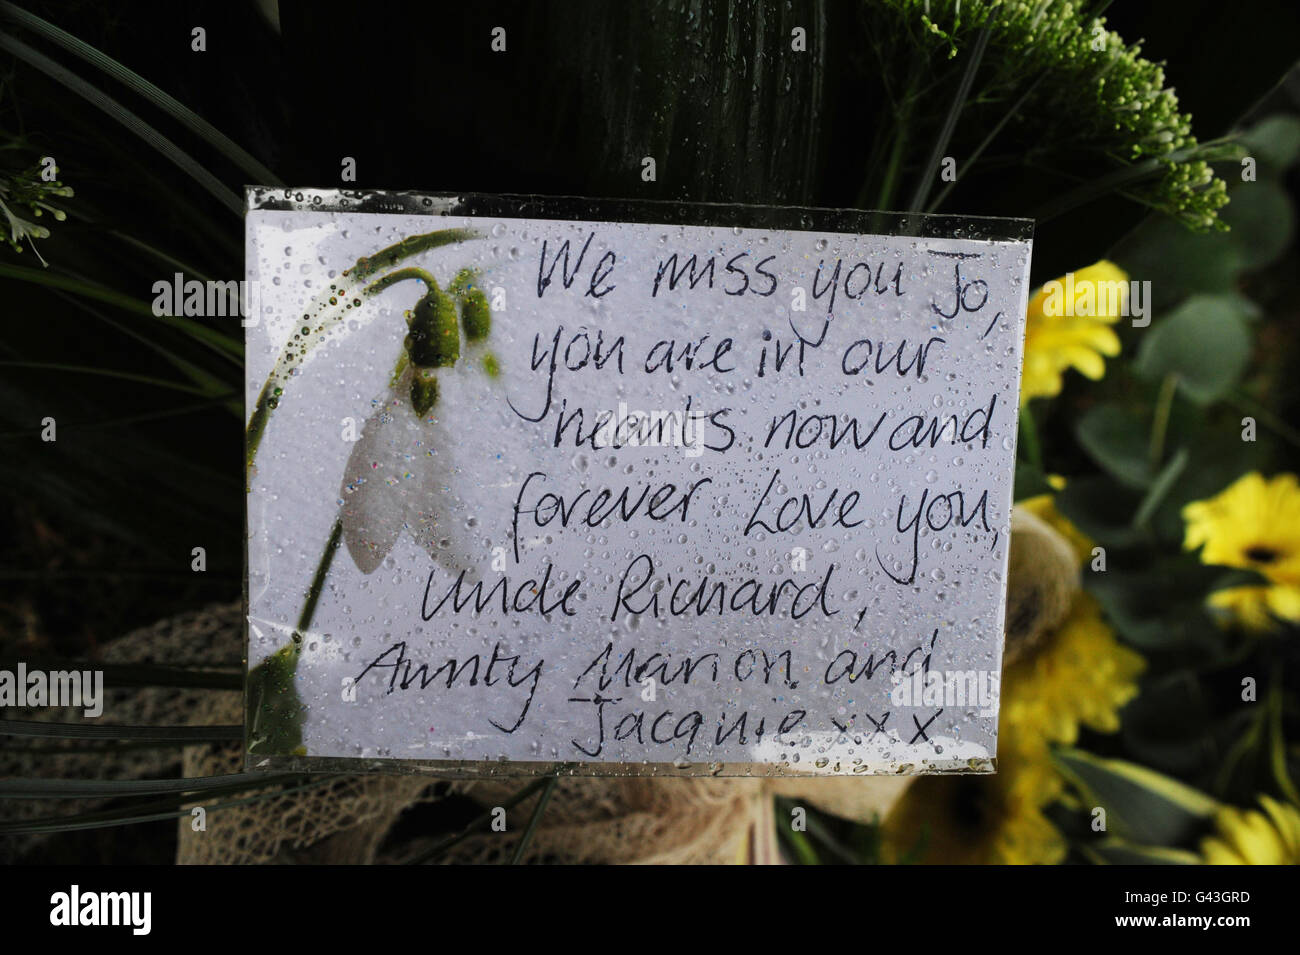 We miss you Jo,
you are in our
hearts now and
forever Love you,
Uncle Richard,
Aunty Marion and
Jacquie xxx
a alamy stock photo
G43GRD
www.alamy.com